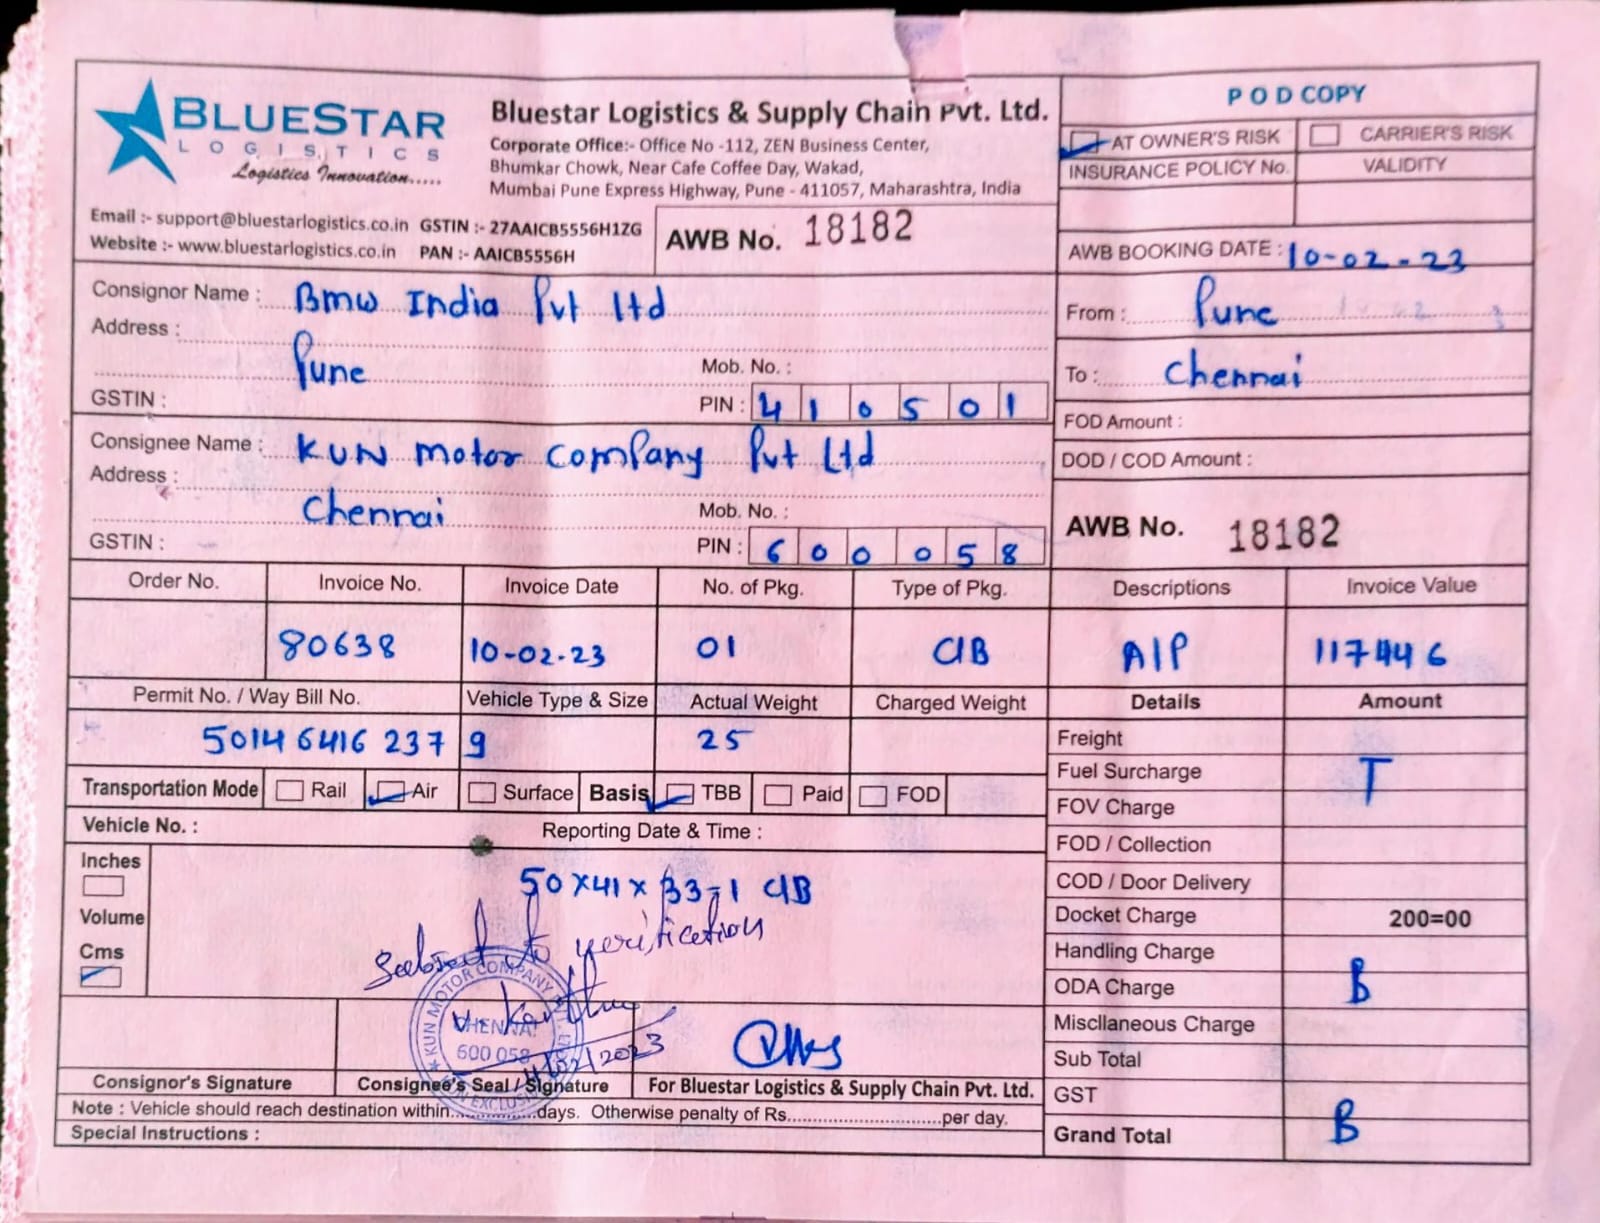 BLUESTAR
LOGISTICS
Logistics Innovation.....
Bluestar Logistics & Supply Chain Pvt. Ltd.
Corporate Office:- Office No -112, ZEN Business Center,
Bhumkar Chowk, Near Cafe Coffee Day, Wakad,
Mumbai Pune Express Highway, Pune - 411057, Maharashtra, India
Email :- support@bluestarlogistics.co.in GSTIN :- 27AAICB5556H1ZG
Website :- www.bluestarlogistics.co.in PAN :- AAICB5556H
AWB No. 18182
P O D COPY
AT OWNER'S RISK CARRIER'S RISK
INSURANCE POLICY No. VALIDITY
AWB BOOKING DATE : 10-02-23
From : Pune
To : Chennai
FOD Amount :
DOD / COD Amount :
AWB No. 18182
Consignor Name : BMW India Pvt Ltd
Address :
Pune Mob. No. :
GSTIN : PIN : 410501
Consignee Name : KUN Motor Company Pvt Ltd
Address :
Chennai Mob. No. :
GSTIN : PIN : 600058
Order No. Invoice No. Invoice Date No. of Pkg. Type of Pkg. Descriptions Invoice Value
80638 10-02-23 01 C/B A/P 117446
Permit No. / Way Bill No. Vehicle Type & Size Actual Weight Charged Weight Details Amount
50146416 237 9 25
Transportation Mode Rail Air Surface Basis TBB Paid FOD
Vehicle No. : Reporting Date & Time :
Inches
Volume
Cms
50x41x33-1 C/B
Subject to verification
KUN MOTOR COMPANY
CHENNAI
600 058
/02/2023
Freight
Fuel Surcharge T
FOV Charge
FOD / Collection
COD / Door Delivery
Docket Charge 200=00
Handling Charge
ODA Charge B
Miscllaneous Charge
Sub Total
GST
Grand Total B
Consignor's Signature Consignee's Seal / Signature For Bluestar Logistics & Supply Chain Pvt. Ltd.
Note : Vehicle should reach destination within...............days. Otherwise penalty of Rs............................per day.
Special Instructions :